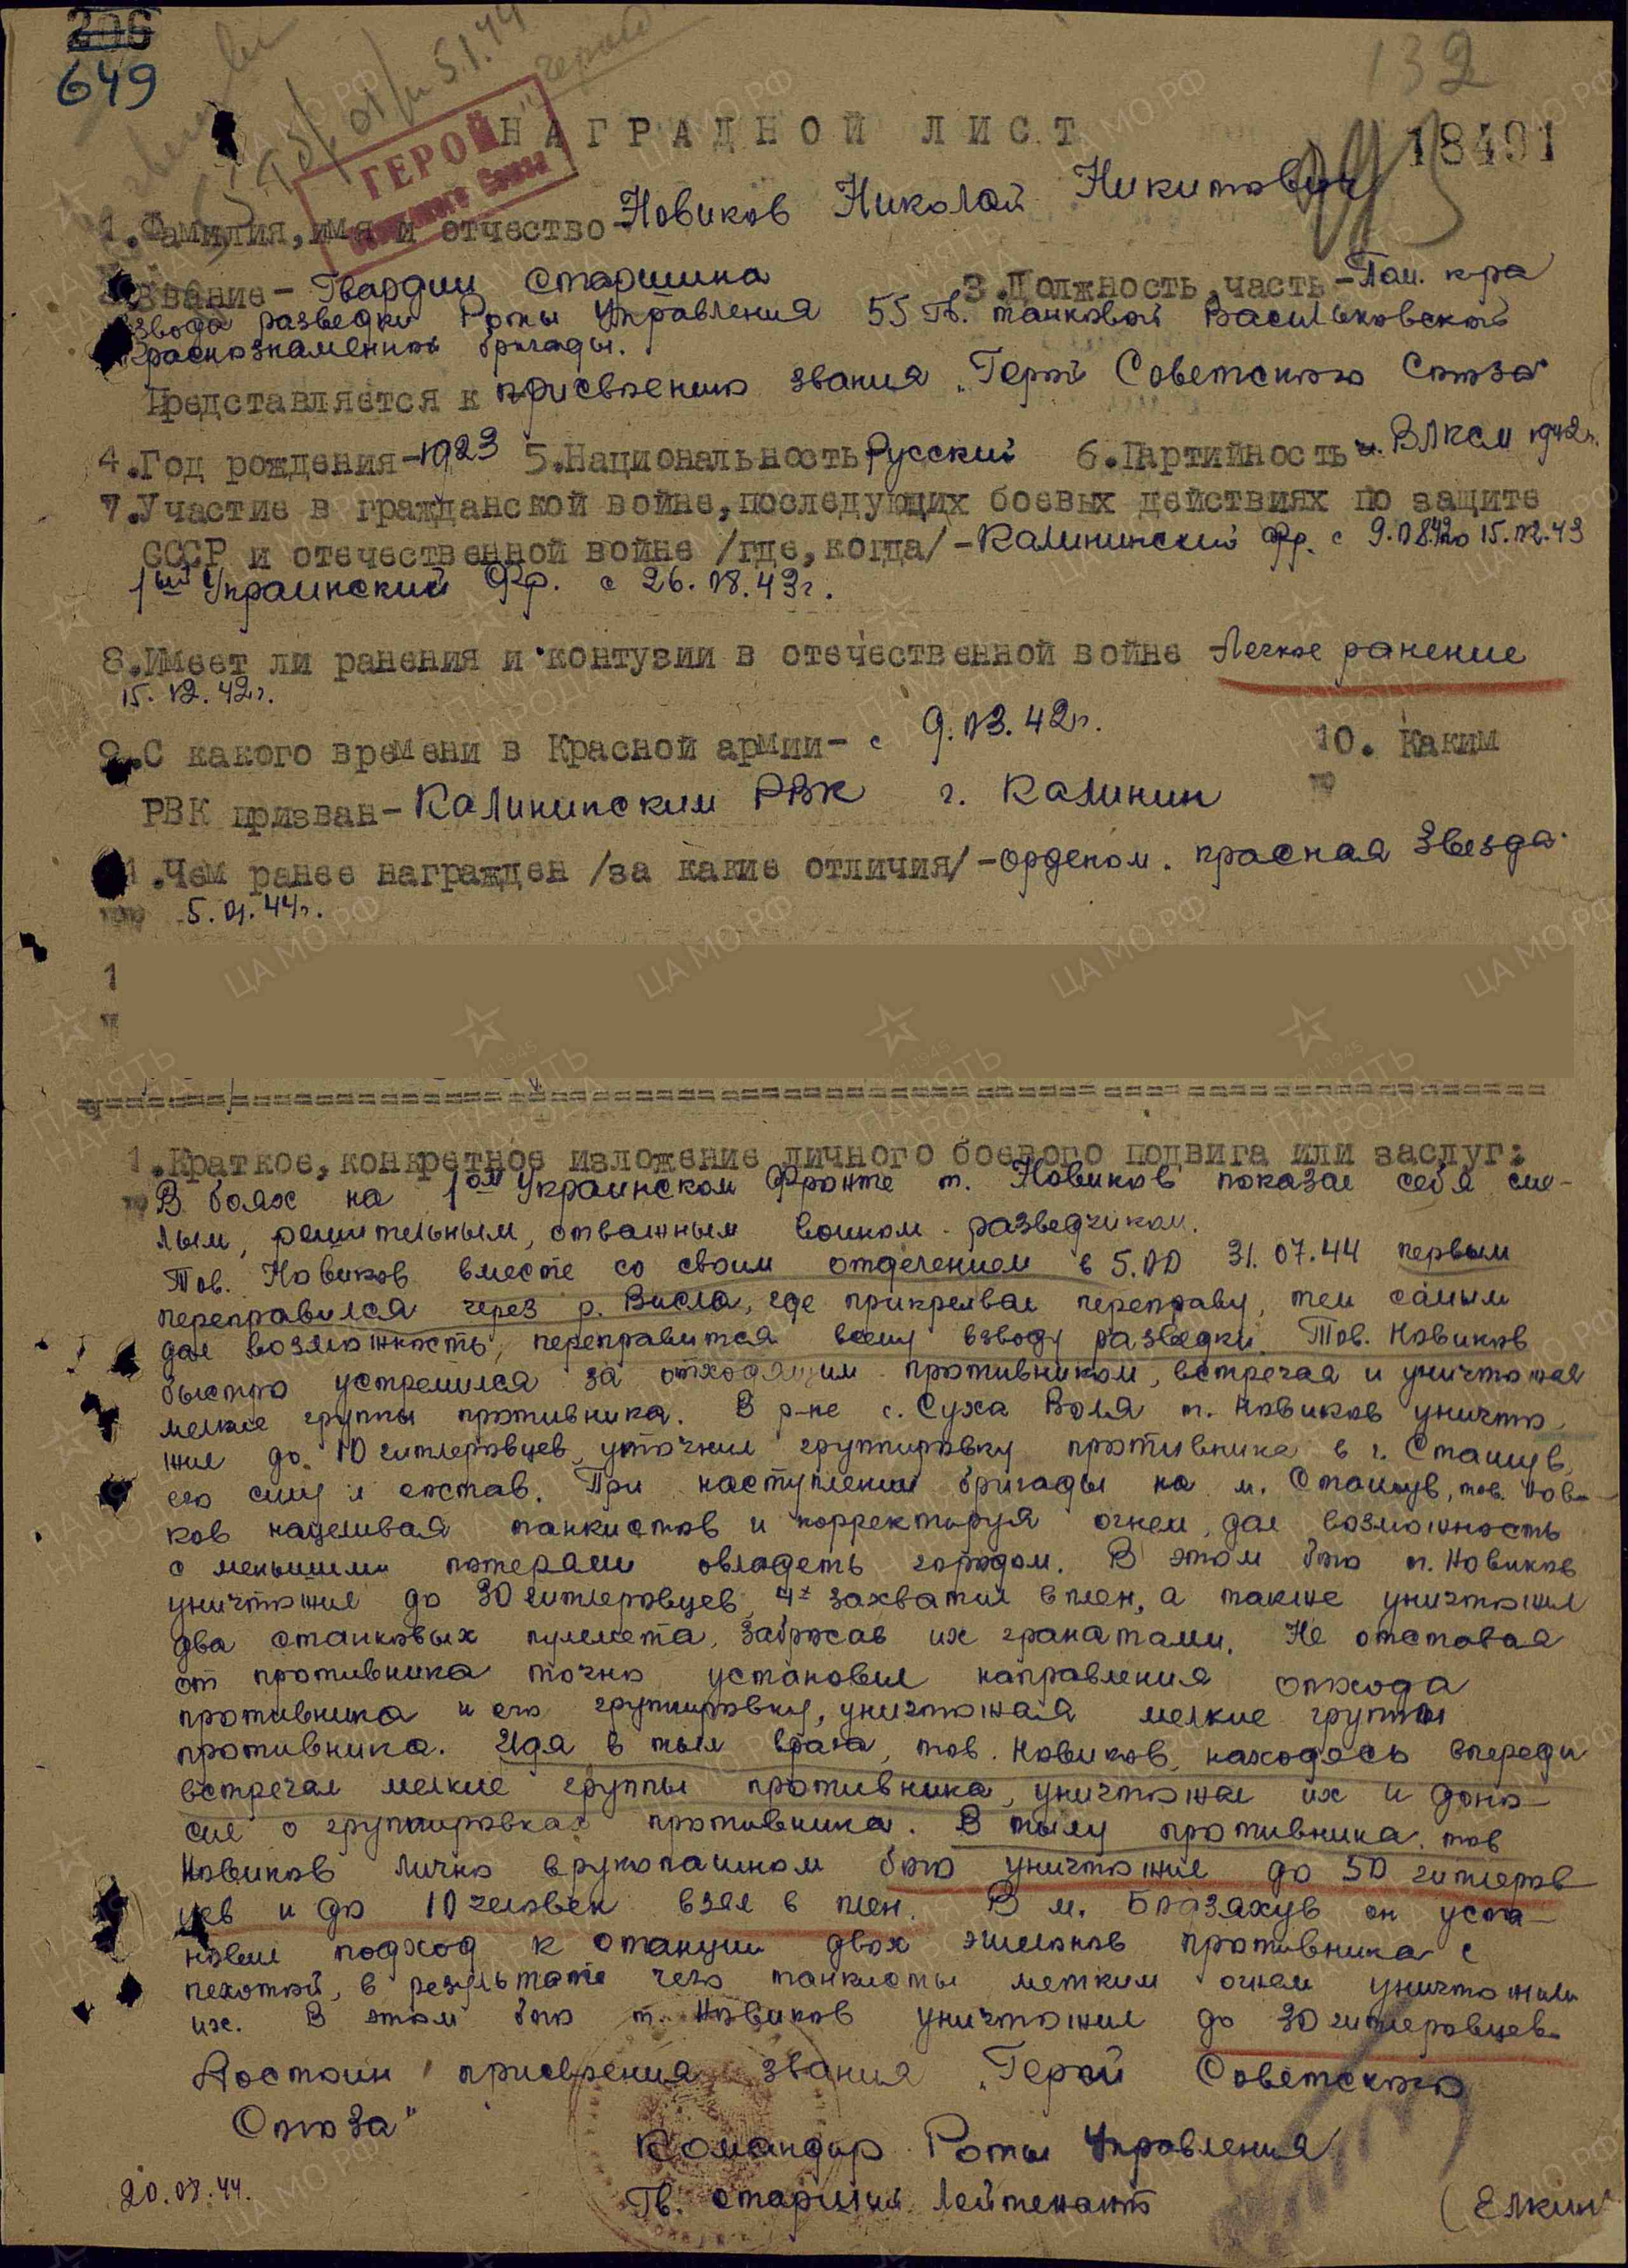 206
649
132
18491
ГЕРОЙ
Советского Союза
НАГРАДНОЙ ЛИСТ
1.Фамилия,имя и отчество-Новиков Николай Никитович
Звание-Гвардии Старшина 3.Должность,часть-Пом. к-ра
взвода разведки Роты Управления 55 Гв. танковой Васильковской
Краснознаменной бригады.
Представляется к присвоению звания „Герой Советского Союза"
4.Год рождения-1923 5.Национальность Русский 6.Партийность ч. ВЛКСМ 1942г.
7.Участие в гражданской войне,последующих боевых действиях по защите
СССР и отечественной войне /где,когда/-Калининский Фр. с
1ый Украинский Фр. с 26.08.43г.
8.Имеет ли ранения и контузии в отечественной войне -Легкое ранение
15.12.42г.
9.С какого времени в Красной армии- с 9.03.42г. 10. Каким
РВК призван-Калининским РВК г. Калинин
11.Чем ранее награжден /за какие отличия/-орденом. красная Звезда
5.01.44г.
1
1.Краткое,конкретное изложение личного боевого подвига или заслуг:
В боях на 1ом Украинском Фронте т. Новиков показал себя сме-
лым, решительным, отважным воином-разведчиком.
Тов. Новиков вместе со своим отделением в 5.00 31.07.44 первым
переправился через р. Висла, где прикрывал переправу, тем самым
дал возможность, переправится всему взводу разведки. Тов. Новиков
быстро устремился за отходящим противником, встречая и уничтожая
мелкие группы противника. В р-не с. Суха Воля т. Новиков уничто-
жил до 10 гитлеровцев, уточнил группировку противника в г. Сташув,
его силу и состав. При наступлении бригады на м. Сташув, тов. Нови-
ков нацеливая танкистов и корректируя огнем, дал возможность
с меньшими потерями овладеть городом. В этом бою т. Новиков
уничтожил до 30 гитлеровцев, 4х захватил в плен, а также уничтожил
два станковых пулемета, забросав их гранатами. Не отставая
от противника точно установил направления отхода
противника и его группировку, уничтожая мелкие группы
противника. Идя в тыл врага, тов. Новиков, находясь впереди
встречал мелкие группы противника, уничтожал их и доно-
сил о группировках противника. В тылу противника тов
Новиков лично в рукопашном бою уничтожил до 50 гитлеров-
цев и до 10 человек взял в плен. В м. он уста-
новил подход к станции двох эшелонов противника с
пехотой, в результате чего танкисты метким огнем уничтожили
их. В этом бою т. Новиков уничтожил до 30 гитлеровцев.
Достоин присвоения звания „Герой Советского
Союза"
Командир Роты Управления
Гв. старший Лейтенант (Елкин
20.08.44.